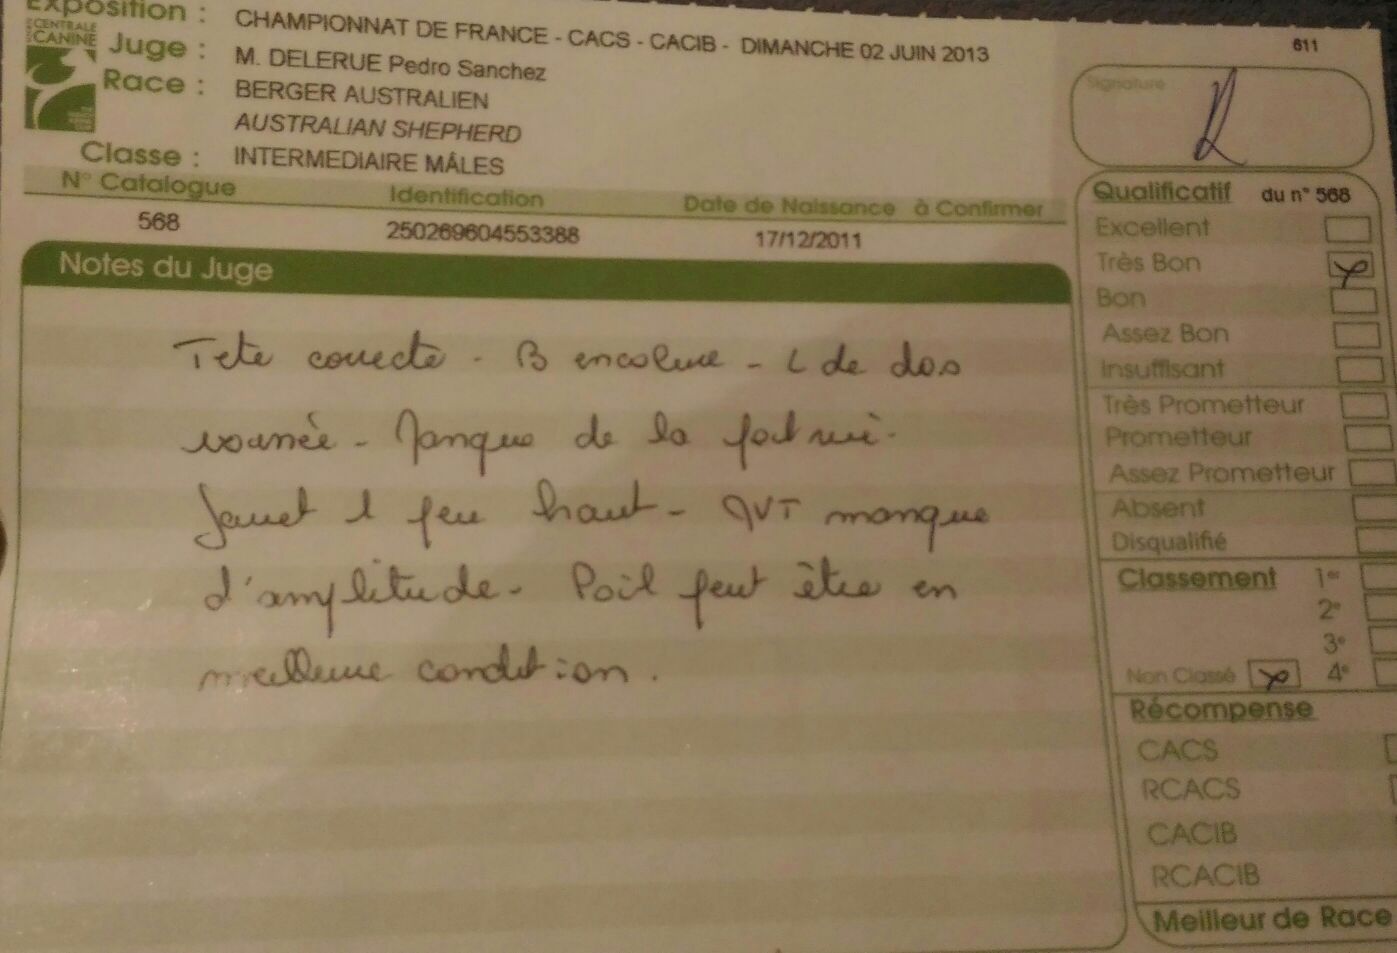 Exposition : CHAMPIONNAT DE FRANCE - CACS - CACIB - DIMANCHE 02 JUIN 2013
611
CENTRALE
CANINE
Juge : M. DELERUE Pedro Sanchez
Race : BERGER AUSTRALIEN
AUSTRALIAN SHEPHERD
Classe : INTERMEDIAIRE MÂLES
N° Catalogue Identification Date de Naissance à Confirmer
568 250269604553388 17/12/2011
Notes du Juge
Tete correcte - B encolure - L de dos
- Manque de la
Jarret 1 peu haut - AVT manque
d'amplitude - Poil peut être en
meilleure condition.
Signature
Qualificatif du n° 568
Excellent
Très Bon
Bon
Assez Bon
Insuffisant
Très Prometteur
Prometteur
Assez Prometteur
Absent
Disqualifié
Classement 1er
2e
3e
Non Classé 4e
Récompense
CACS
RCACS
CACIB
RCACIB
Meilleur de Race